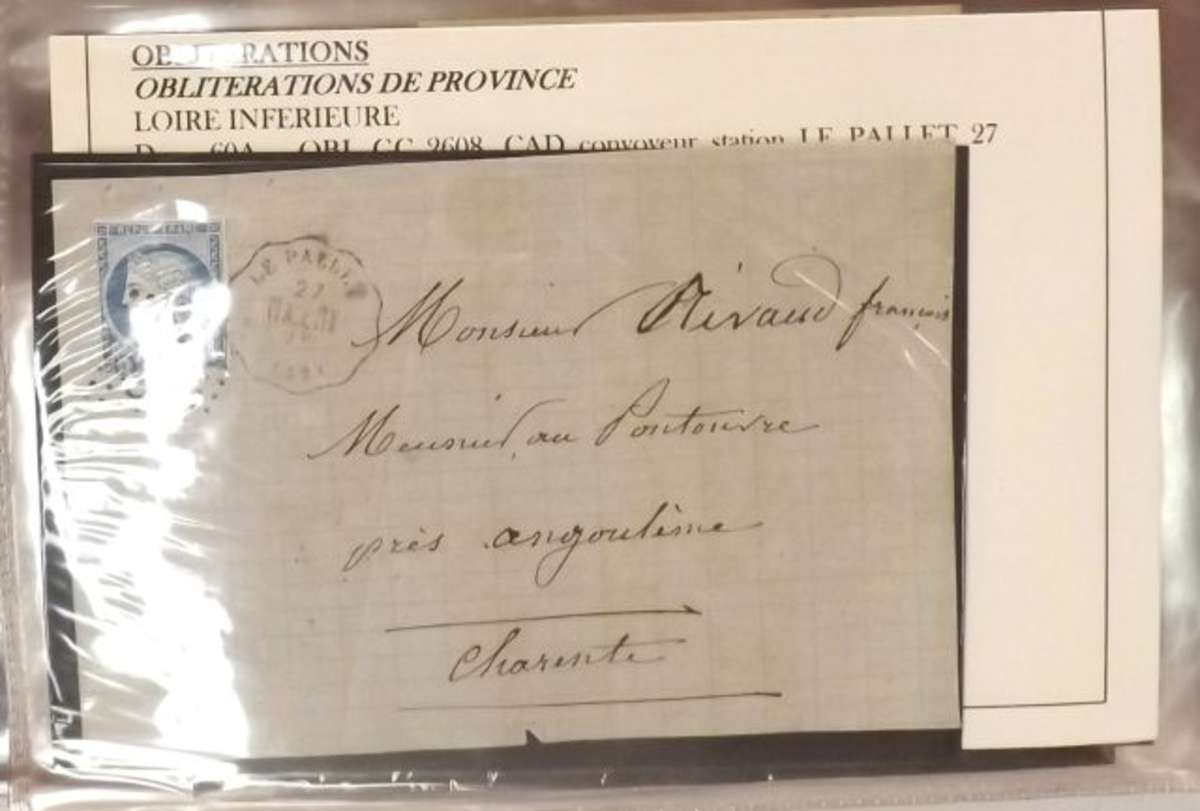 OBLITERATIONS
OBLITERATIONS DE PROVINCE
LOIRE INFERIEURE
60A OBL GC 2608 CAD convoyeur station LE PALLET 27
REPUB FRANC
LE PALLET
27
Monsieur Rivaud françois
Meunier au Pontouvre
près angoulême
Charente